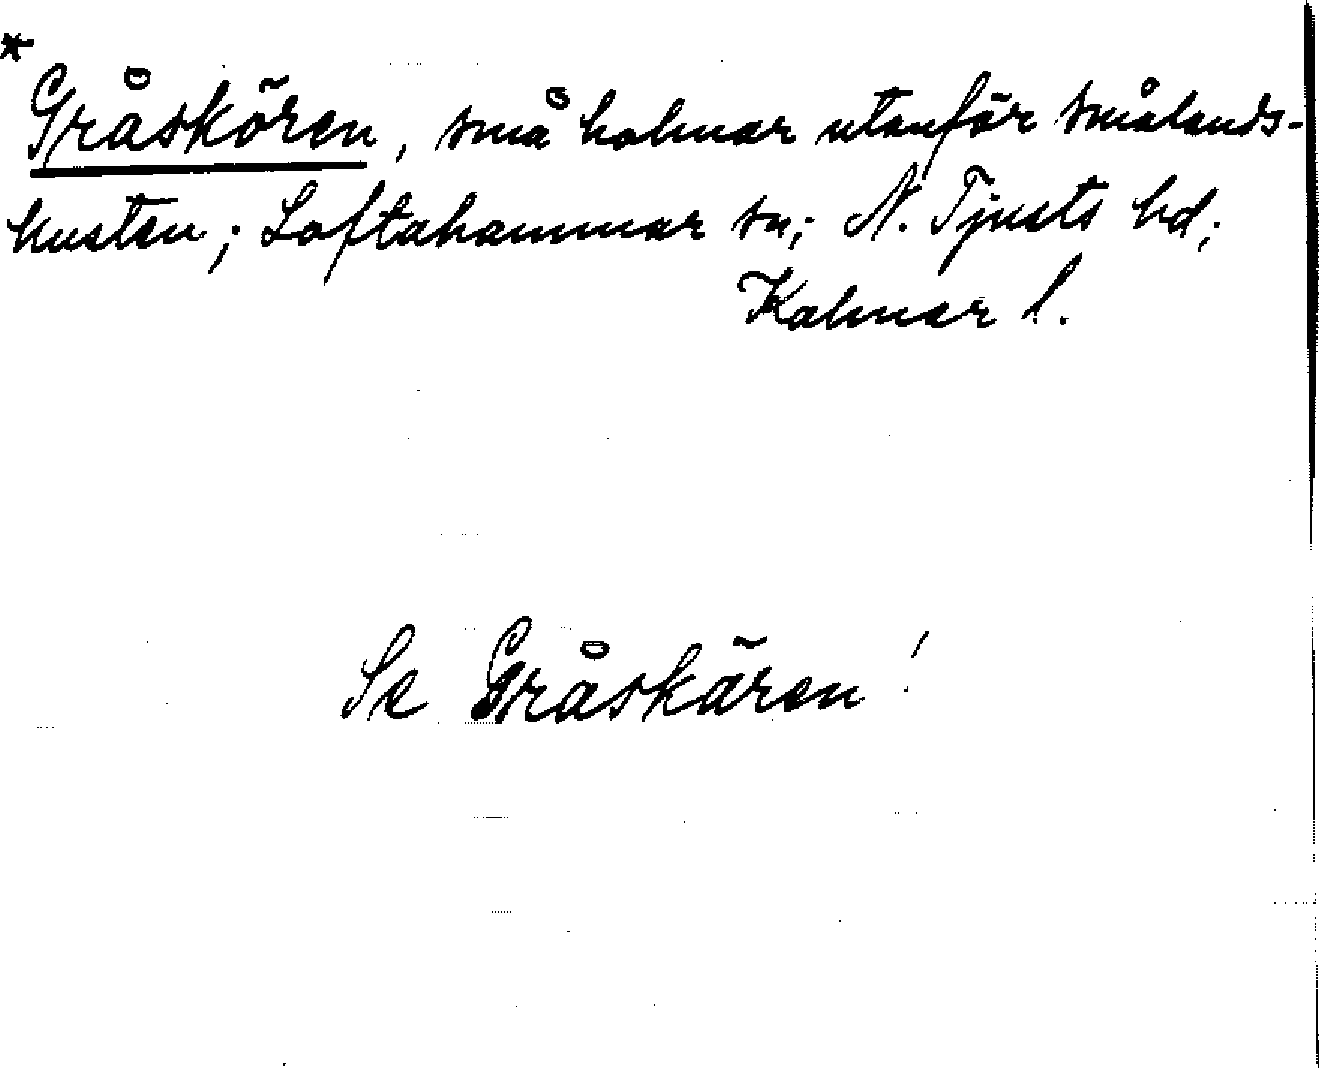 *
Gråskören, små holmar utanför smålands-
kusten; Loftahammar sn; N. Tjusts hd;
Kalmar l.
Se Gråskären!